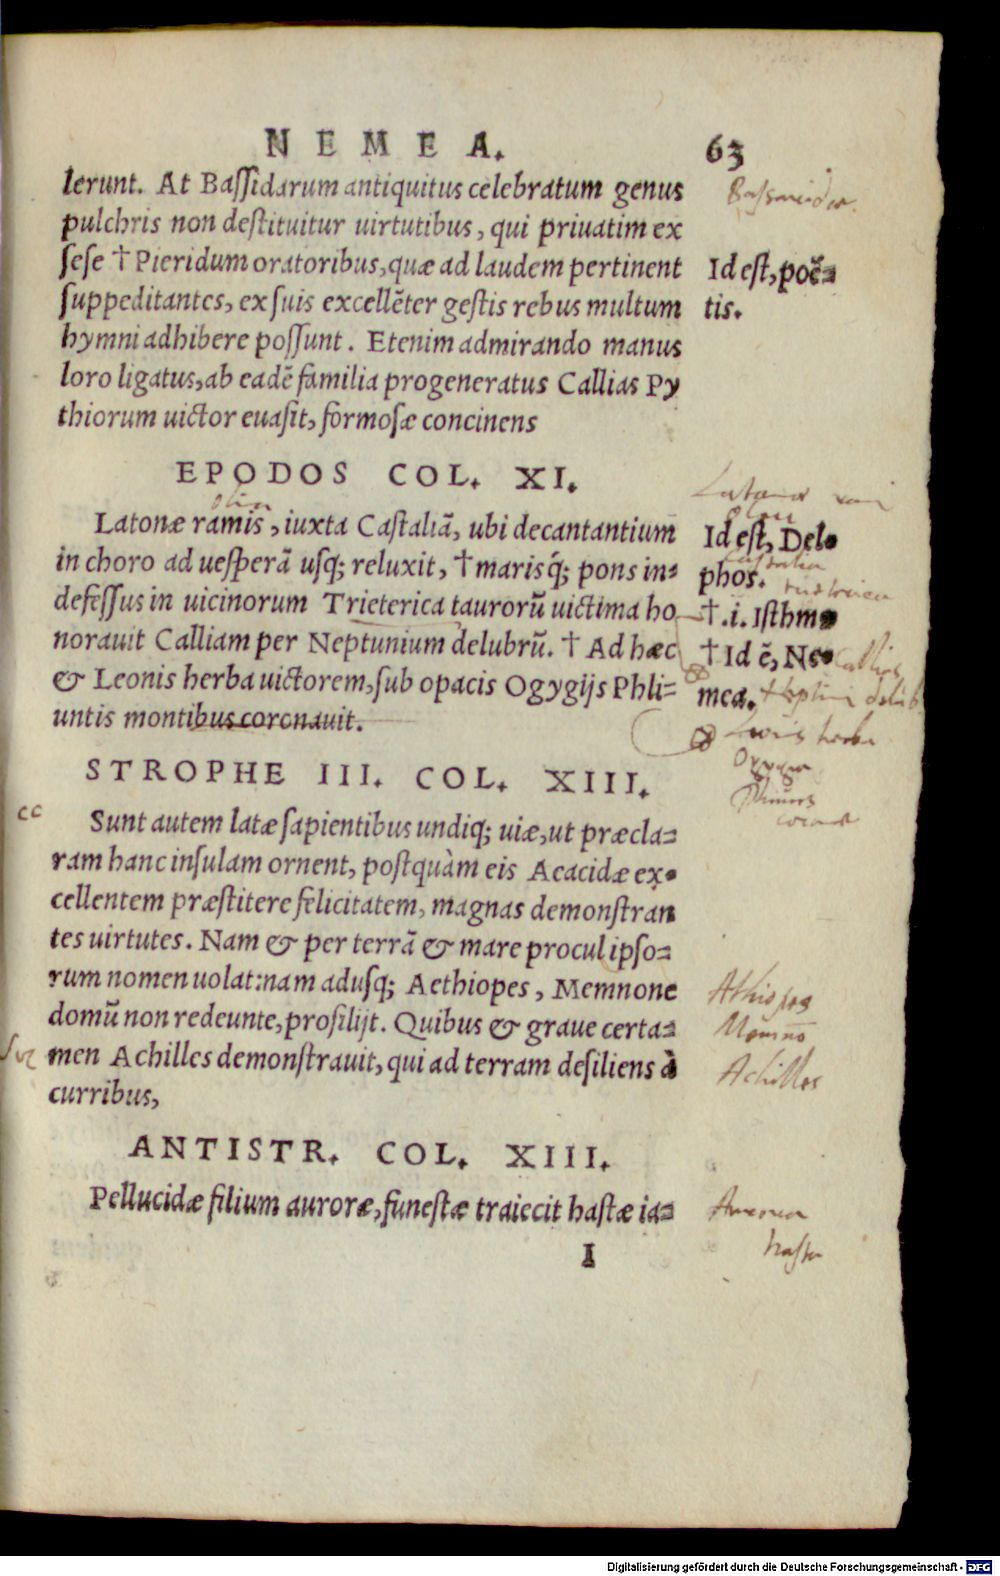 NEMEA. 63
lerunt. At Baſſidarum antiquitus celebratum genus
pulchris non deſtituitur uirtutibus, qui priuatim ex
ſeſe † Pieridum oratoribus, quæ ad laudem pertinent
Id eſt, poë⸗
ſuppeditantes, ex ſuis excellẽter geſtis rebus multum
tis.
hymni adhibere poſſunt. Etenim admirando manus
loro ligatus, ab eadẽ familia progeneratus Callias Py
thiorum uictor euaſit, formoſæ concinens
EPODOS COL. XI.
Latonæ ramis, iuxta Caſtaliã, ubi decantantium
Id eſt, Del⸗
in choro ad ueſperã uſq; reluxit, † marisq́; pons in⸗
phos.
defeſſus in uicinorum Trieterica taurorũ uictima ho
†.i. Iſthm⸗
norauit Calliam per Neptunium delubrũ. † Ad hæc
† Id ẽ, Ne⸗
& Leonis herba uictorem, ſub opacis Ogygijs Phli⸗
mea.
untis montibus coronauit.
STROPHE III. COL. XIII.
cc
Sunt autem latæ ſapientibus undiq; uiæ, ut præcla⸗
ram hanc inſulam ornent, poſtquàm eis Aeacidæ ex⸗
cellentem præſtitere felicitatem, magnas demonſtran
tes uirtutes. Nam & per terrã & mare procul ipſo⸗
rum nomen uolat: nam aduſq; Aethiopes, Memnone
domũ non redeunte, proſilijt. Quibus & graue certa⸗
men Achilles demonſtrauit, qui ad terram deſiliens à
Achilles
curribus,
ANTISTR. COL. XIII.
Pellucidæ filium auroræ, funeſtæ traiecit haſtæ ia⸗
haſta
I
Digitalisierung gefördert durch die Deutsche Forschungsgemeinschaft - DFG